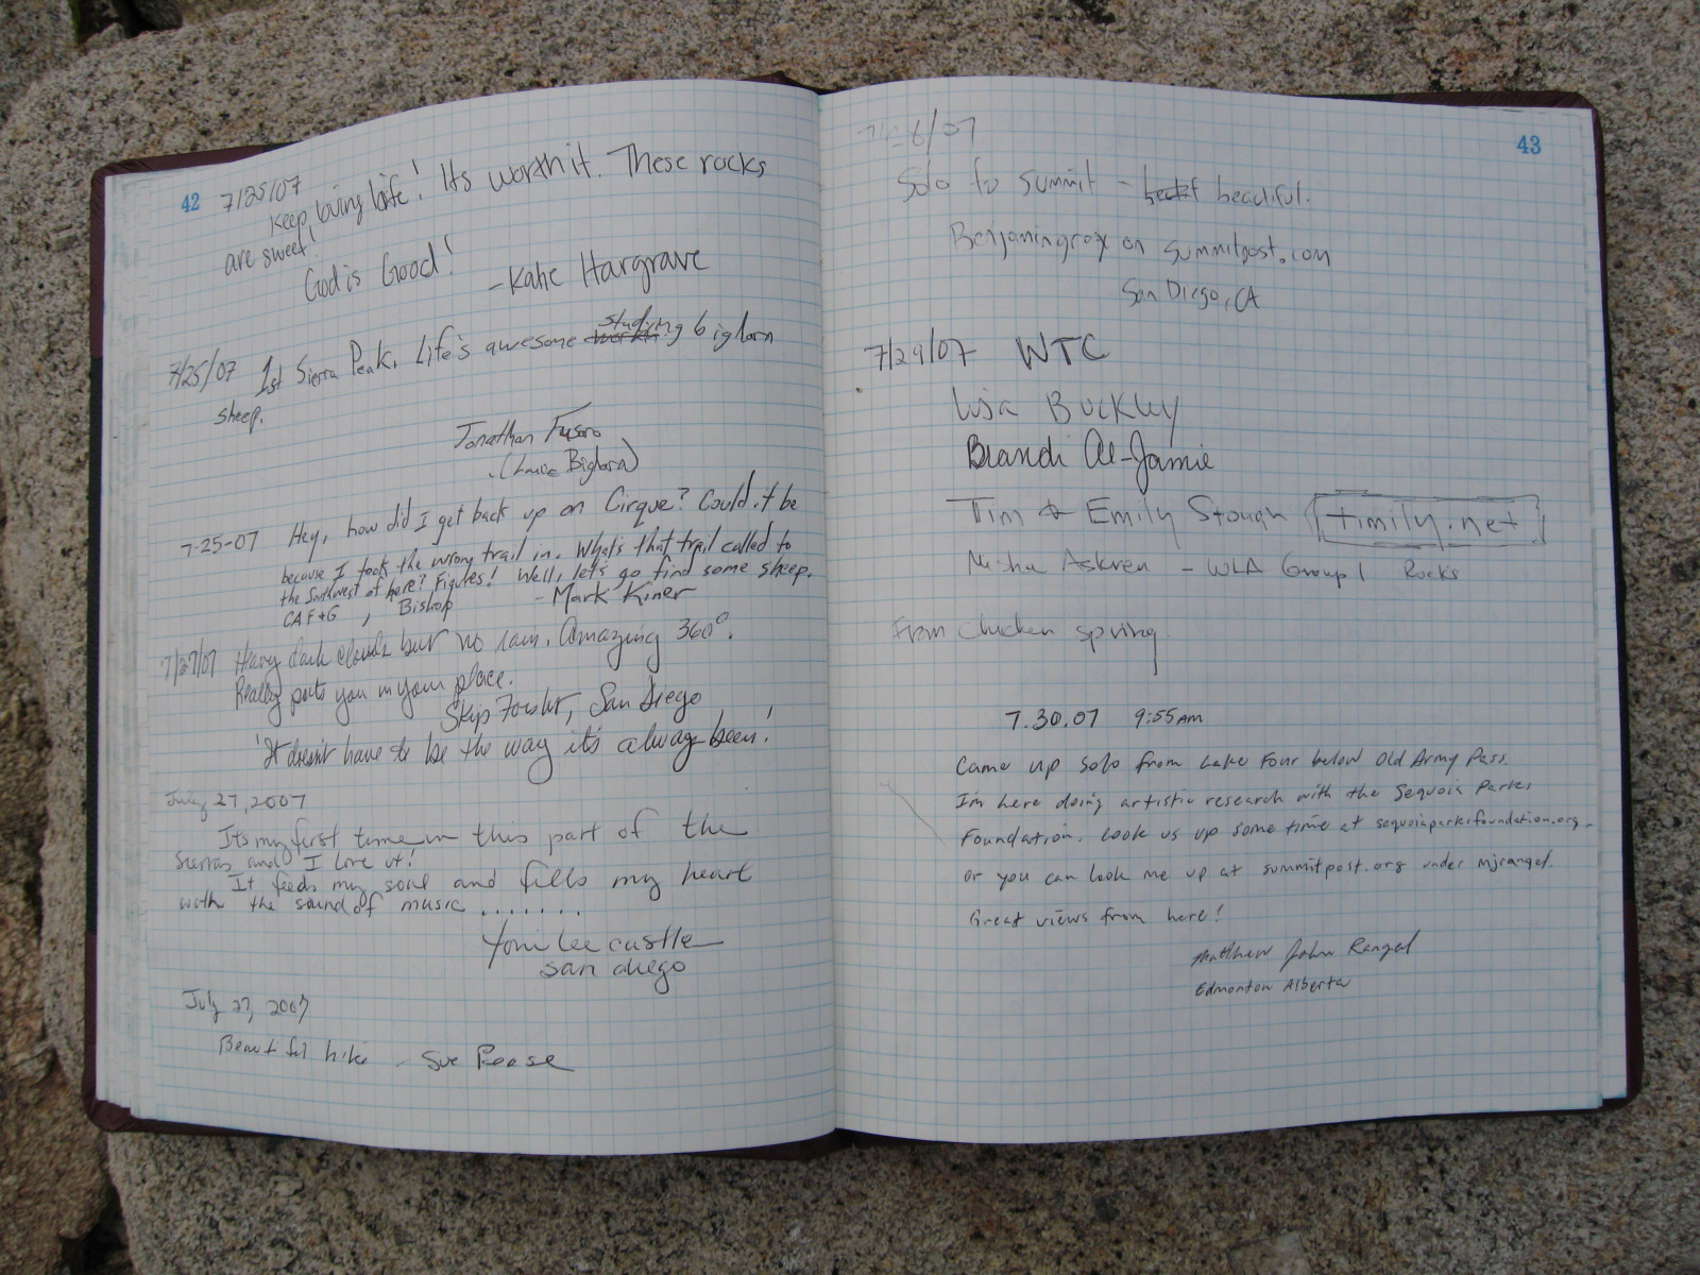 42 7/25/07
Keep loving life! Its worth it. These rocks
are sweet!
God is Good!
-Katie Hargrave
7/25/07 1st Sierra Peak. Life's awesome studying bighorn
sheep.
Jonathan Fusaro
Bighorn)
7-25-07 Hey, how did I get back up on Cirque? Could it be
because I took the wrong trail in. What's that trail called to
the Southwest of here? Figures! Well, let's go find some sheep.
CAF+G, Bishop - Mark Kiner
7/27/07 Heavy dark clouds but no rain. Amazing 360°.
Really puts you in your place.
Skip Forster, San Diego
'It doesn't have to be the way it's always been!'
July 27, 2007
Its my first time in this part of the
Sierras and I love it!
It feeds my soul and fills my heart
with the sound of music .......
Yoni Lee castle
San diego
July 27, 2007
Beautiful hike - Sue Pease
43
6/07
Solo to summit - beautiful.
Benjamingray on summitpost.com
San Diego, CA
7/29/07 WTC
Lisa Buckley
Brandi Al-Jamie
Tim & Emily Stough timily.net
Misha Askren - WLA Group 1 Rocks
From chicken spring
7.30.07 9:55 AM
Came up solo from Lake Four below Old Army Pass.
I'm here doing artistic research with the Sequoia Parks
Foundation. Look us up some time at sequoiaparksfoundation.org.
or you can look me up at summitpost.org under mjrangel.
Great views from here!
Matthew John Rangel
Edmonton Alberta